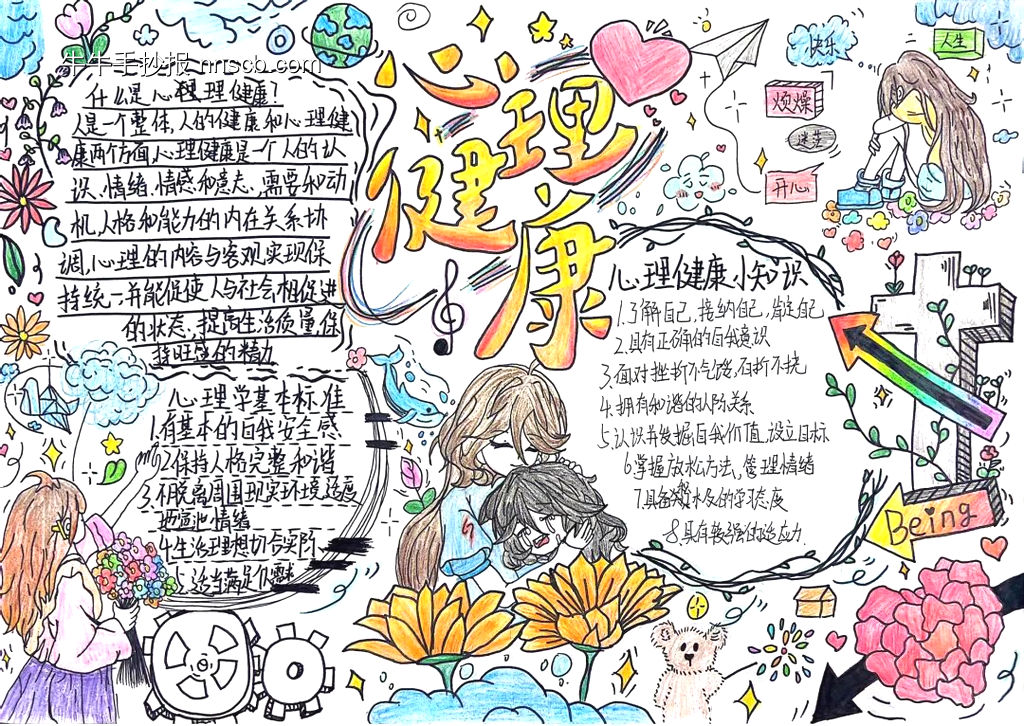 牛牛手抄报 nnscb.com
心理
健康
什么是心理理健康?
人是一个整体,人的健康和心理健
康两个方面,心理健康是一个人的认
识、情绪、情感和意志、需要和动
机,人格和能力的内在关系协
调,心理的内容与客观实现保
持统一,并能促使人与社会相促进
的状态,提高生活质量,保
持旺盛的精力
心理学基本标准
1.有基本的自我安全感
2.保持人格完整和谐
3.不脱离周围现实环境适度
地宣泄情绪
4.生活理想切合实际
5.适当满足个需求
快乐
烦燥
迷茫
开心
人生
心理健康小知识
1.了解自己,接纳自己,肯定自己
2.具有正确的自我意识
3.面对挫折不气馁,百折不挠
4.拥有和谐的人际关系
5.认识并发掘自我价值,设立目标
6.掌握放松方法,管理情绪
7.具备水及的学习态度
8.具有较强的适应力.
Being